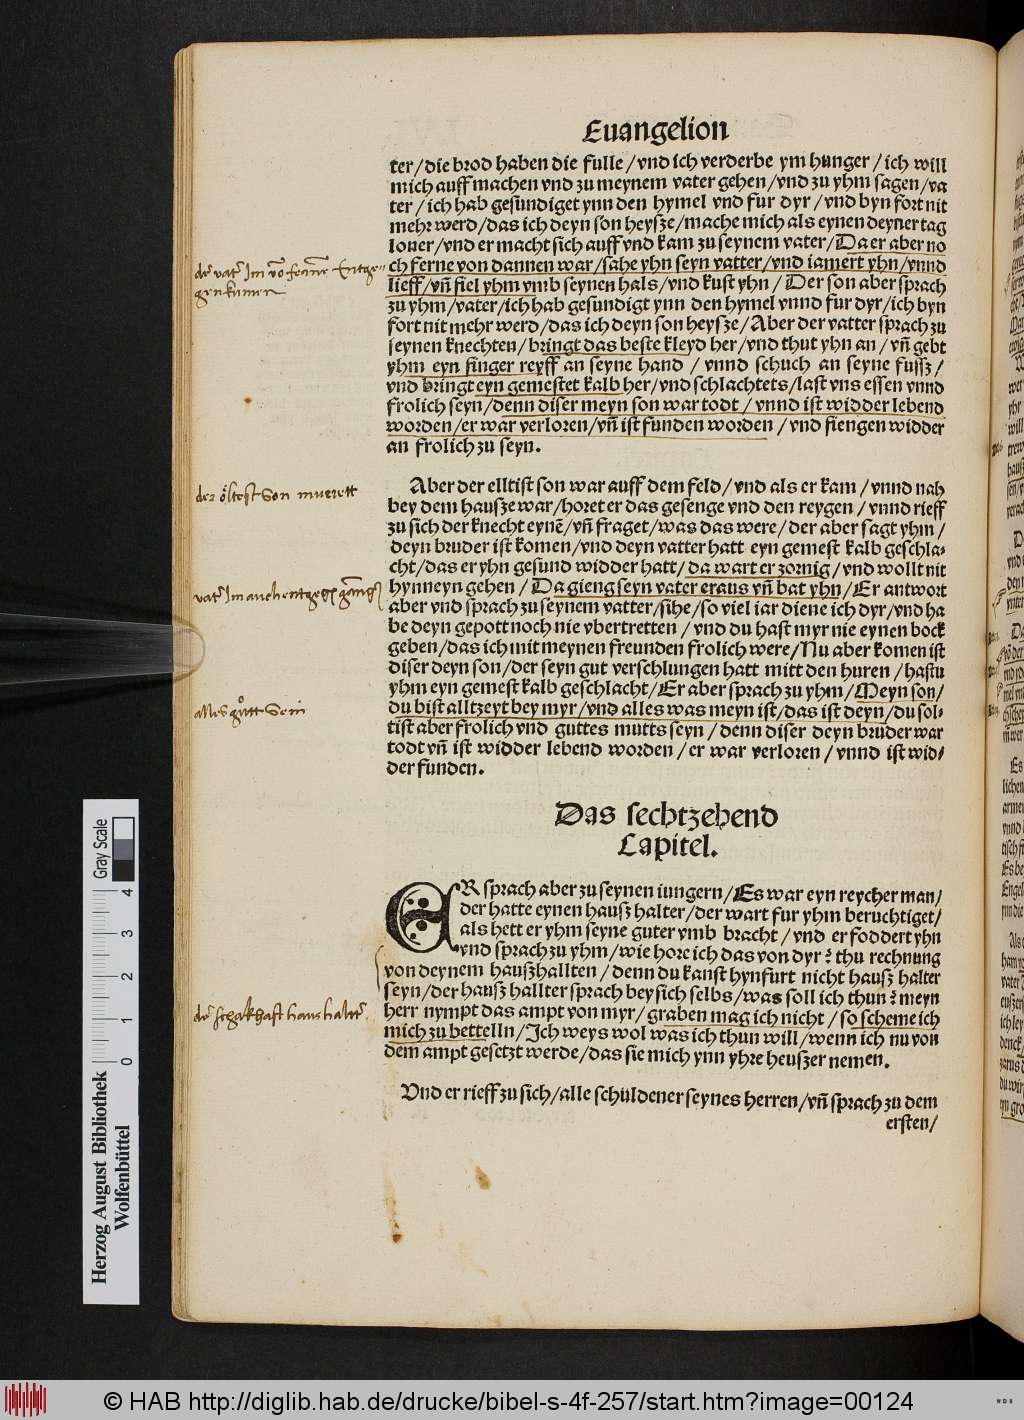 Euangelion
ter/die brod haben die fulle/vnd ich verderbe ym hunger/ich will
mich auff machen vnd zu meynem vater gehen/vnd zu yhm sagen/va
ter/ich hab gesundiget ynn den hymel vnd fur dyr/vnd byn fort nit
mehr werd/das ich deyn son heysze/mache mich als eynen deyner tag
loner/vnd er macht sich auff vnd kam zu seynem vater/Da er aber no
ch ferne von dannen war/sahe yhn seyn vatter/vnd iamert yhn/vnnd
lieff/vñ fiel yhm vmb seynen hals/vnd kust yhn/Der son aber sprach
zu yhm/vater/ich hab gesundigt ynn den hymel vnnd fur dyr/ich byn
fort nit mehr werd/das ich deyn son heysze/Aber der vatter sprach zu
seynen knechten/bringt das beste kleyd her/vnd thut yhn an/vñ gebt
yhm eyn finger reyff an seyne hand/vnnd schuch an seyne fussz/
vnd bringt eyn gemestet kalb her/vnd schlachtets/last vns essen vnnd
frolich seyn/denn diser meyn son war todt/vnnd ist widder lebend
worden/er war verloren/vñ ist funden worden/vnd fiengen widder
an frolich zu seyn.
der öltest Son
Aber der elltist son war auff dem feld/vnd als er kam/vnnd nah
bey dem hausze war/horet er das gesenge vnd den reygen/vnnd rieff
zu sich der knecht eynẽ/vñ fraget/was das were/der aber sagt yhm/
deyn bruder ist komen/vnd deyn vatter hatt eyn gemest kalb geschla-
cht/das er yhn gesund widder hatt/da wart er zornig/vnd wollt nit
hynneyn gehen/Da gieng seyn vater eraus vñ bat yhn/Er antwort
aber vnd sprach zu seynem vatter/sihe/so viel iar diene ich dyr/vnd ha
be deyn gepott noch nie vbertretten/vnd du hast myr nie eynen bock
geben/das ich mit meynen freunden frolich were/Nu aber komen ist
diser deyn son/der seyn gut verschlungen hatt mitt den huren/hastu
yhm eyn gemest kalb geschlacht/Er aber sprach zu yhm/Meyn son/
du bist alltzeyt bey myr/vnd alles was meyn ist/das ist deyn/du sol-
tist aber frolich vnd guttes mutts seyn/denn diser deyn bruder war
todt vñ ist widder lebend worden/er war verloren/vnnd ist wid-
der funden.
alles gůtt Sein
Das sechtzehend
Capitel.
ER sprach aber zu seynen iungern/Es war eyn reycher man/
der hatte eynen hausz halter/der wart fur yhm beruchtiget/
als hett er yhm seyne guter vmb bracht/vnd er foddert yhn
vnd sprach zu yhm/wie hore ich das von dyr? thu rechnung
von deynem hauszhallten/denn du kanst hynfurt nicht hausz halter
seyn/der hausz hallter sprach bey sich selbs/was soll ich thun? meyn
herr nympt das ampt von myr/graben mag ich nicht/so scheme ich
mich zu bettelln/Ich weys wol was ich thun will/wenn ich nu von
dem ampt gesetzt werde/das sie mich ynn yhre heuszer nemen.
Vnd er rieff zu sich/alle schuldener seynes herren/vñ sprach zu dem
ersten/
Gray Scale
0 1 2 3 4
Herzog August Bibliothek
Wolfenbüttel
© HAB http://diglib.hab.de/drucke/bibel-s-4f-257/start.htm?image=00124